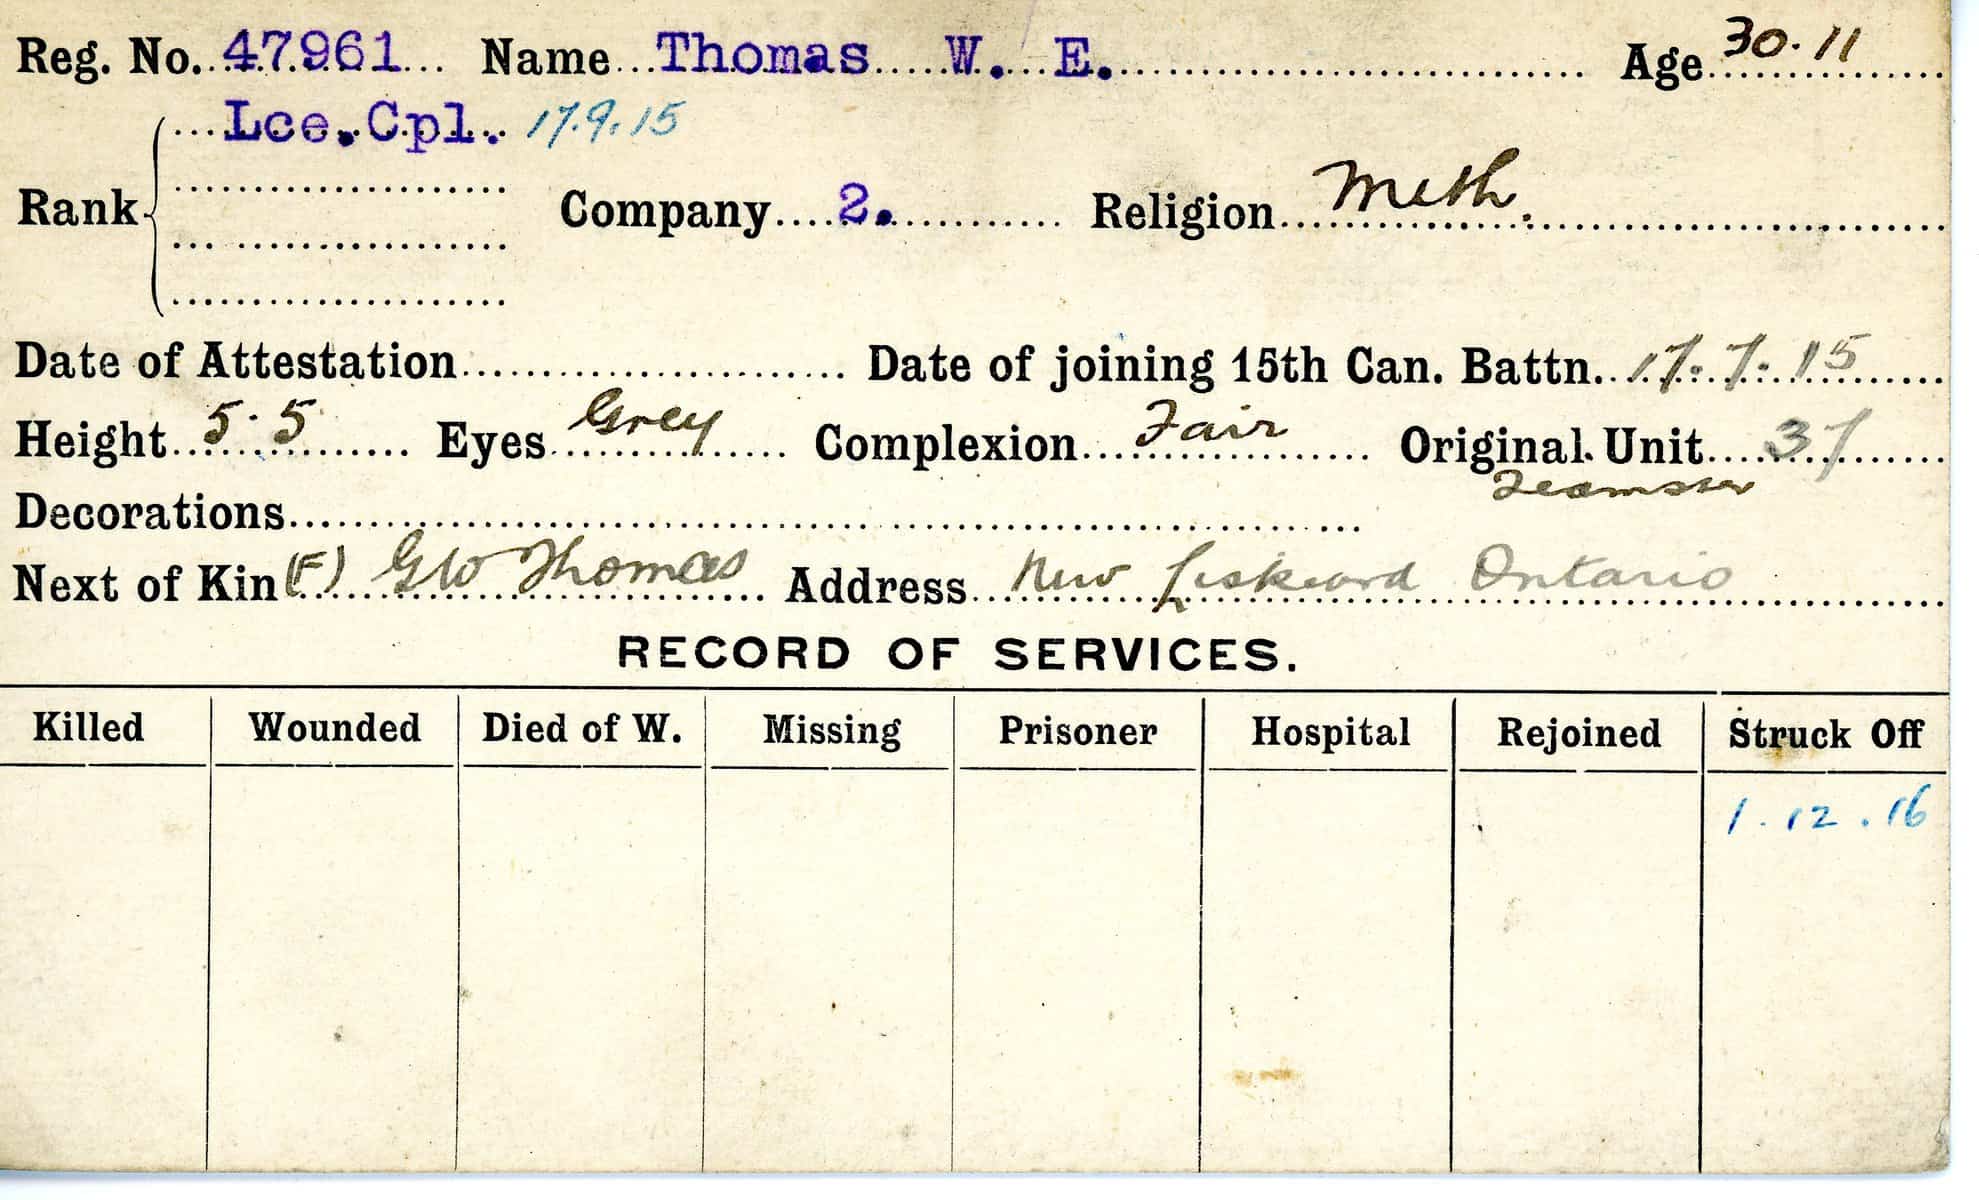 Reg. No. 47961 Name Thomas W. E. Age 30.11
Lce.Cpl. 17.9.15
Rank Company 2. Religion Meth.
Date of Attestation Date of joining 15th Can. Battn. 17.7.15
Height 5.5 Eyes Grey Complexion Fair Original Unit 37
Teamster
Decorations
Next of Kin (F) G W Thomas Address New Liskeard Ontario
RECORD OF SERVICES.
Killed Wounded Died of W. Missing Prisoner Hospital Rejoined Struck Off
1.12.16